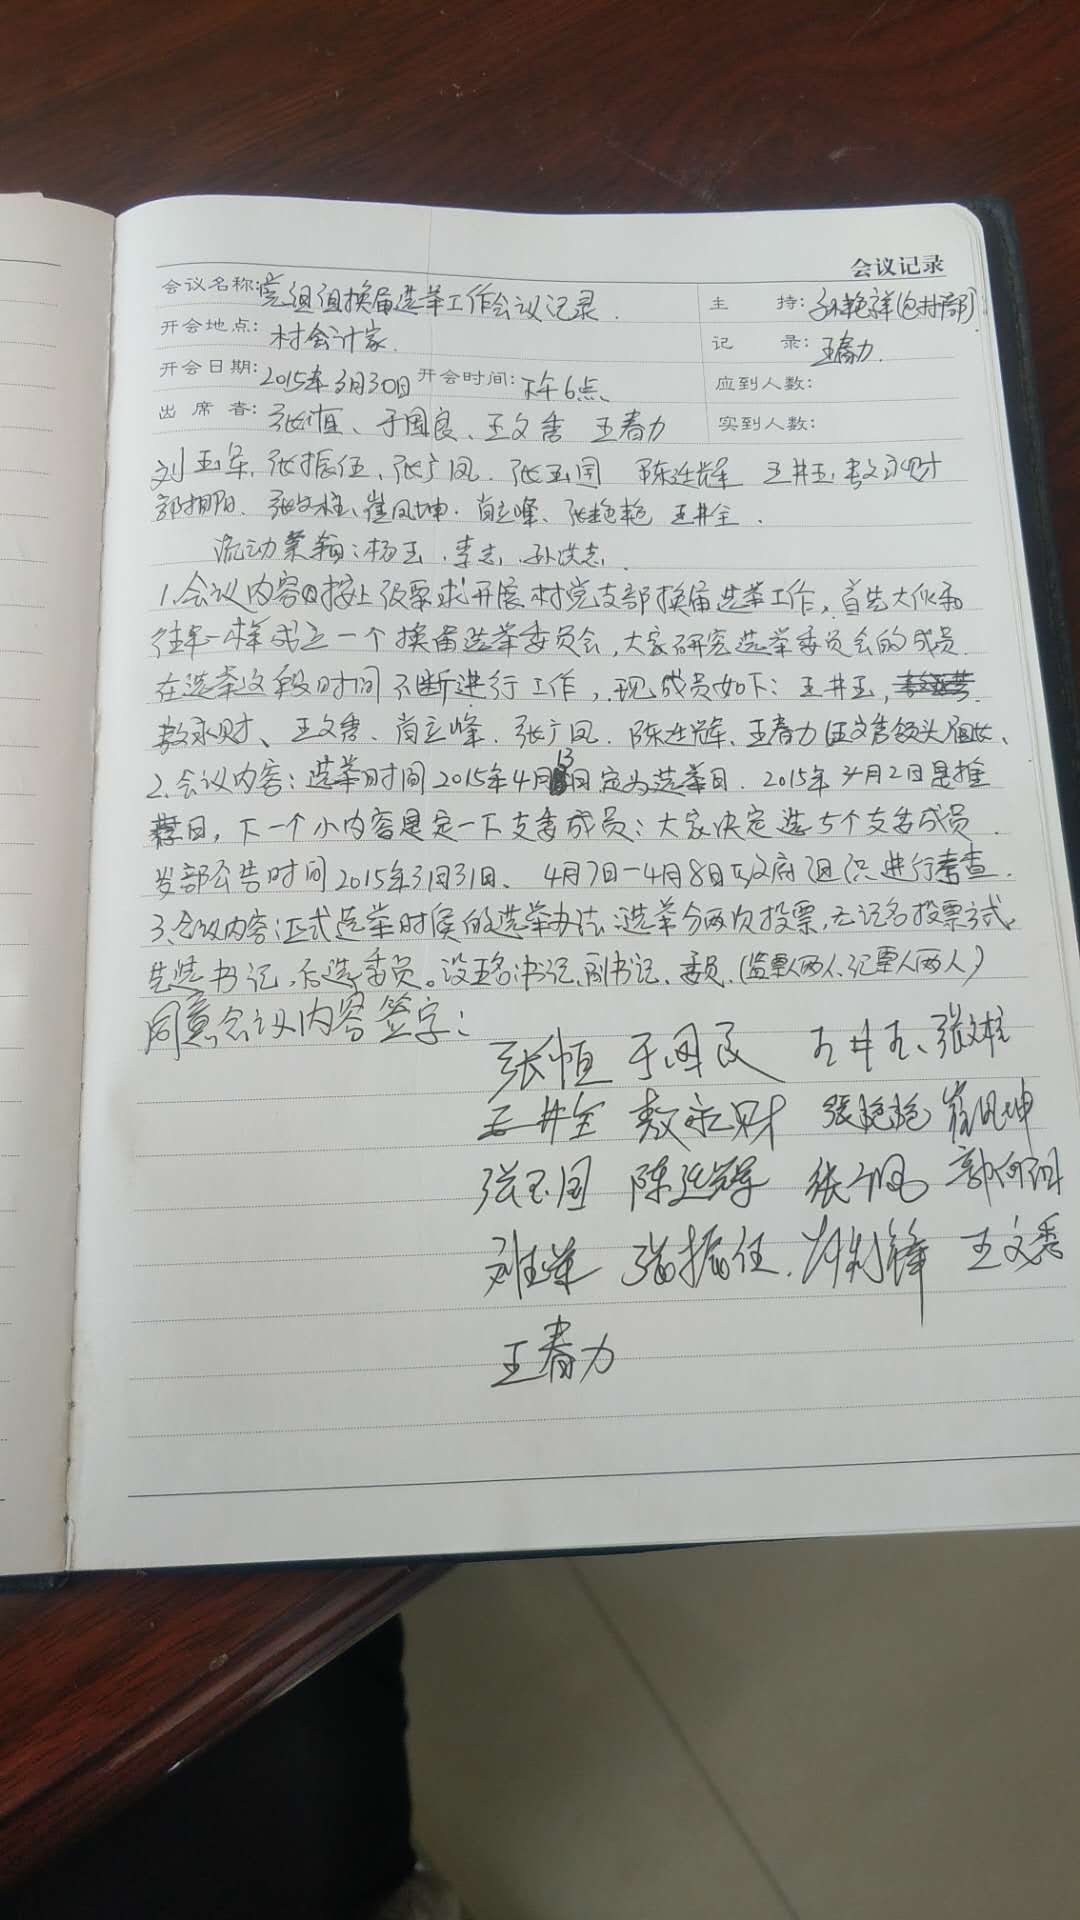 会议记录
会议名称:党组组换届选举工作会议记录. 主 持:孙艳祥(包村部)
开会地点:村会计家. 记 录:王春力.
开会日期:2015年3月30日 开会时间:下午6点、 应到人数:
出 席 者:张恒、于国良、王文秀 王春力 实到人数:
刘玉军,张振伍,张广凤.张玉国 陈连辉 王井玉,敖永财
郭相阳.张文柱、崔凤坤.肖立峰、张艳艳 王井全.
流动党员:杨玉.李志,孙洪志,
1.会议内容 按上级要求开展村党支部换届选举工作,首先大伙和
往年一样成立一个换届选举委员会,大家研究选举委员会的成员
在选举这段时间不断进行工作,现成员如下:王井玉,
敖永财、王文秀.肖立峰.张广凤.陈连辉、王春力(王文秀领头
2.会议内容:选举时间2015年4月13日定为选举日.2015年4月2日是推
荐日,下一个小内容是定一下支委成员:大家决定选5个支委成员.
发部公告时间2015年3月31日、4月7日-4月8日政府组织进行考查.
3.会议内容:正式选举时候的选举办法:选举分两次投票,无记名投票方式,
先选书记,后选委员。设 书记,副书记、委员.(监票人两人、记票人两人)
同意会议内容签字:
张恒 于国良 王井玉、张文柱
王井全 敖永财 張艳艳 崔凤坤
张玉国 陈连辉 张广凤 郭向阳
刘玉军 張振伍. 肖立锋 王文秀
王春力